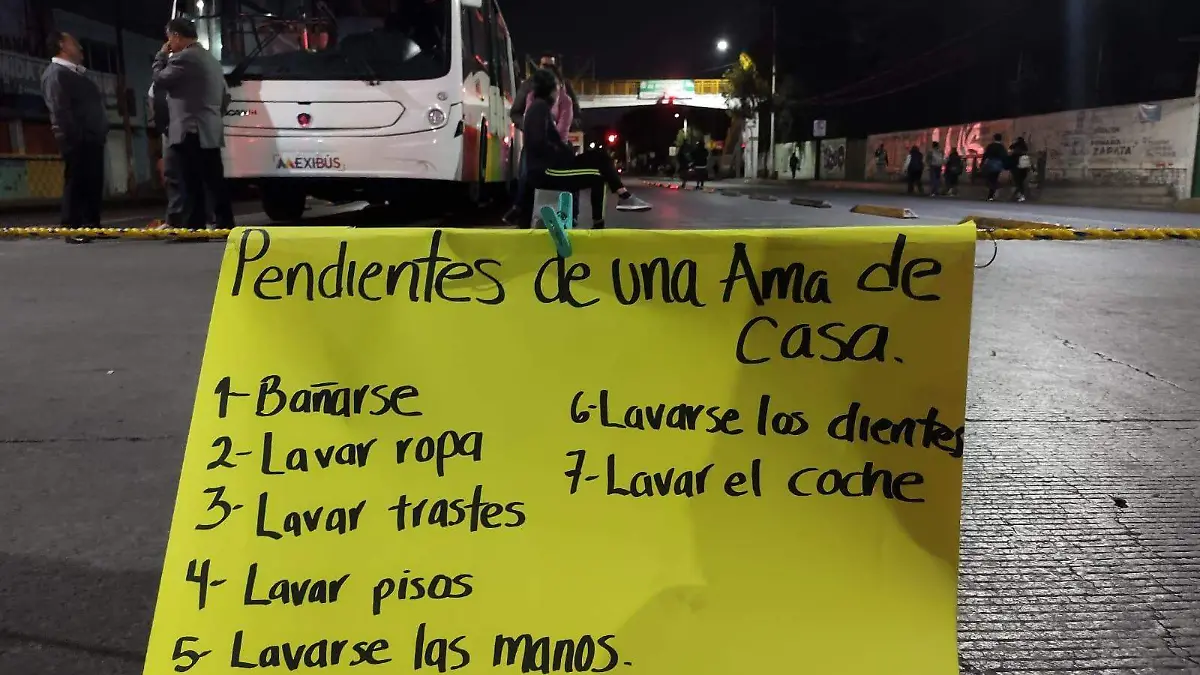 MEXIBÚS
ZAPATA
Pendientes de una Ama de
Casa.
1- Bañarse
2- Lavar ropa
3- Lavar trastes
4- Lavar pisos
5- Lavarse las manos.
6- Lavarse los dientes
7- Lavar el coche